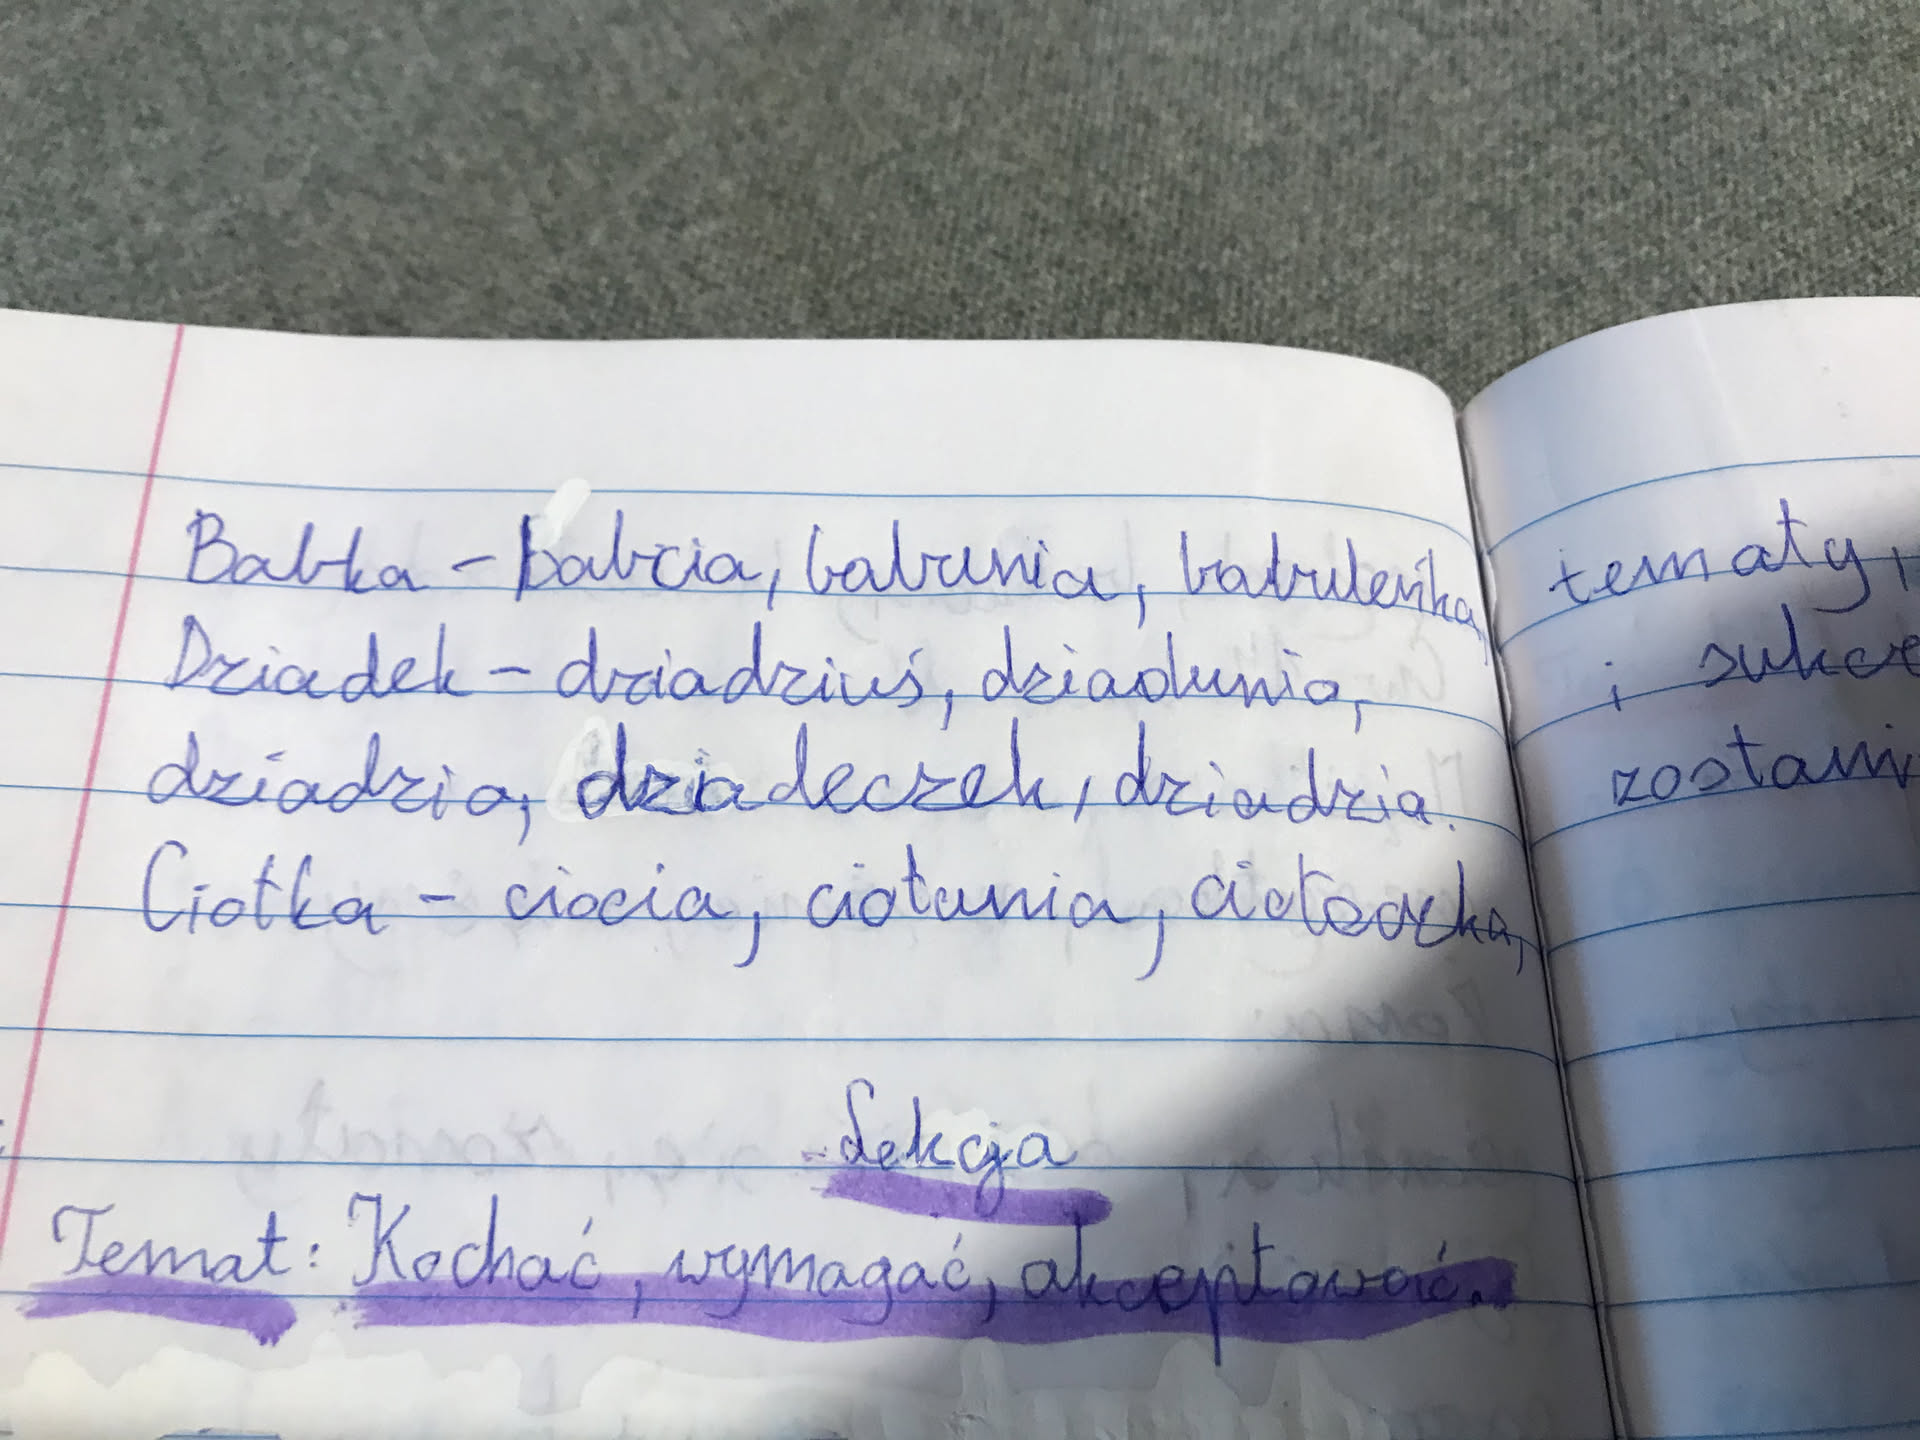 Babka – babcia, babunia, babuleńka,
Dziadek – dziadziuś, dziadunio,
dziadzio, dziadeczek, dziadzia.
Ciotka – ciocia, ciotunia, cioteczka,
Lekcja
Temat: Kochać, wymagać, akceptować.
tematy,
i